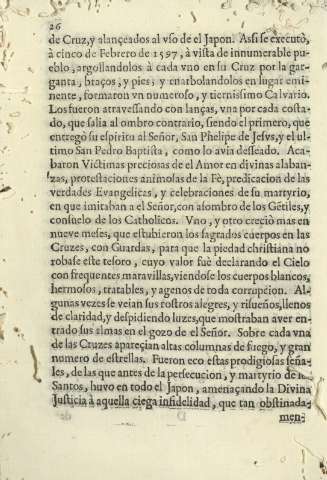 26
de Cruz,y alançeados al vso de el Japon. Assi se executò,
à cinco de Febrero de 1597, à vista de innumerable pu-
eblo, argollandolos à cada vno en su Cruz por la gar-
ganta, braços, y pies, y enarbolandolos en lugar emi-
nente, formaron vn numeroso, y tiernissimo Calvario.
Los fueron atravessando con lanças, vna por cada costa-
do, que salia al ombro contrario, siendo el primero, que
entregò su espiritu al Señor, San Phelipe de Jesvs, y el ul-
timo San Pedro Baptista, como lo avia desseado. Aca-
baron Victimas preciosas de el Amor en divinas alaban-
zas, protestaciones animosas de la Fè, predicacion de las
verdades Evangelicas, y celebraciones de su martyrio,
en que imitaban a el Señor, con asombro de los Gétiles, y
consuelo de los Catholicos. Vno, y otro creciò mas en
nueve meses, que estubieron los sagrados cuerpos en las
Cruzes, con Guardas, para que la piedad christiana no
robase este tesoro, cuyo valor fuè declarando el Cielo
con frequentes maravillas, viendose los cuerpos blancos,
hermosos, tratables, y agenos de toda corrupcion. Al-
gunas vezes se veian sus rostros alegres, y risueños, llenos
de claridad, y despidiendo luzes, que mostraban aver en-
trado sus almas en el gozo de el Señor. Sobre cada vna
de las Cruzes apareçian altas columnas de fuego, y gran
numero de estrellas. Fueron eco estas prodigiosas seña-
les, de las que antes de la persecucion, y martyrio de los
Santos, huvo en todo el Japon, amenaçando la Divina
Justicia à aquella ciega infidelidad, que tan obstinada-
men-